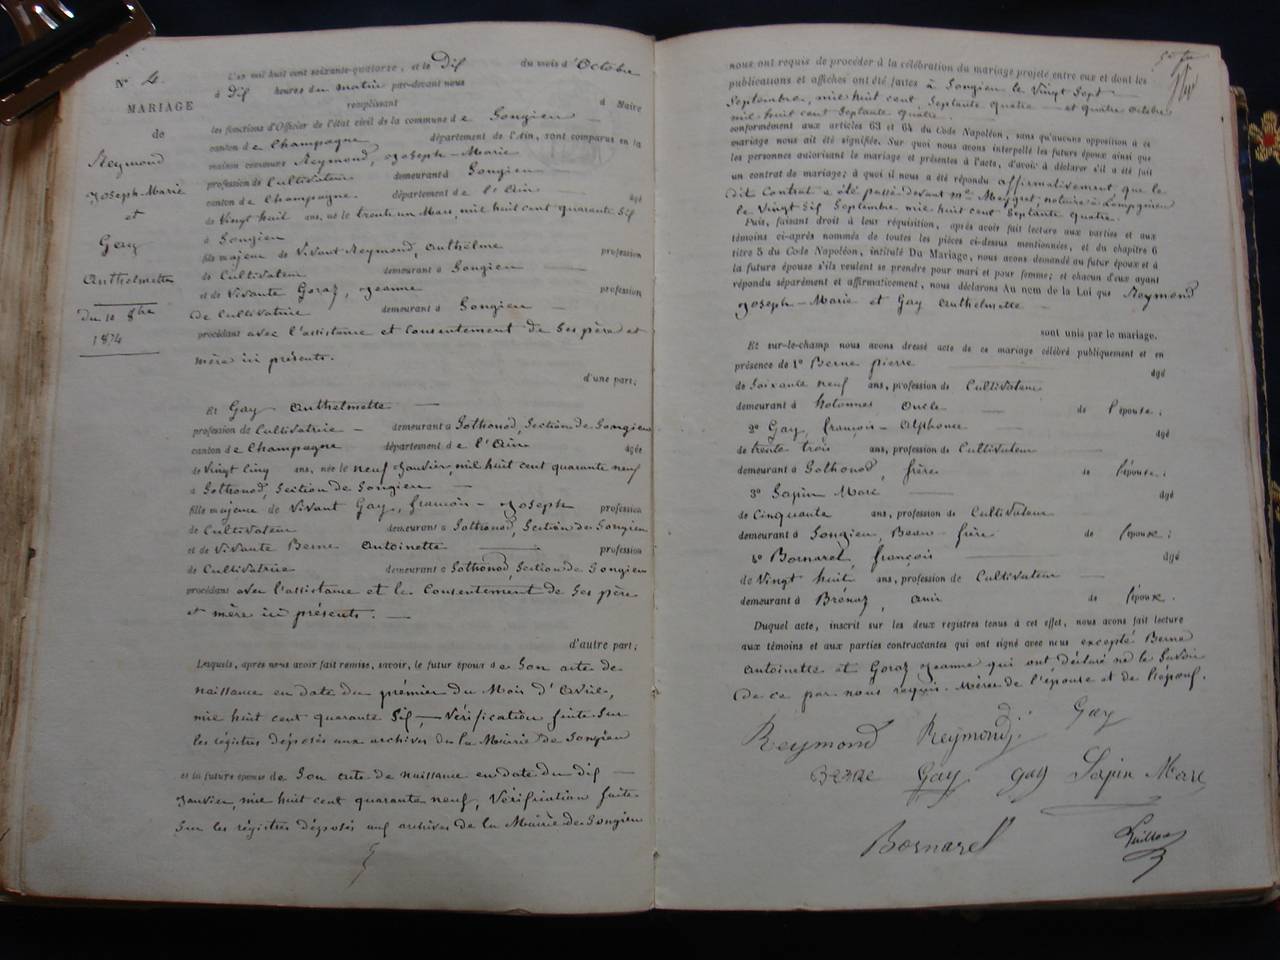 N° 4
MARIAGE
de
Reymond
Joseph-Marie
et
Gay
Anthelmette
du 10 8bre
1874
L'an mil huit cent soixante-quatorze, et le Dix du mois d'Octobre
à Dix heures du matin par-devant nous
remplissant à Maire
les fonctions d'Officier de l'état civil de la commune de Songieu
canton de Champagne département de l'Ain, sont comparus en la
maison commune Reymond, Joseph-Marie
profession de Cultivateur demeurant à Songieu
canton de Champagne département de l'Ain âgé
de Vingt huit ans, né le trente un Mars, mil huit cent quarante Six
à Songieu
fils majeur de Vivant Reymond, Anthelme profession
de Cultivateur demeurant à Songieu
et de Vivante Goraz, Jeanne profession
de Cultivatrice demeurant à Songieu
procédant avec l'assistance et Consentement de Ses père et
mère ici présents.
d'une part;
Et Gay Anthelmette
profession de Cultivatrice demeurant à Sothonod, Section de Songieu
canton de Champagne département de l'Ain âgée
de Vingt Cinq ans, née le neuf Janvier, mil huit cent quarante neuf
à Sothonod, Section de Songieu
fille majeure de Vivant Gay, françois-Joseph profession
de Cultivateur demeurant à Sothonod, Section de Songieu
et de Vivante Berne Antoinette profession
de Cultivatrice demeurant à Sothonod, Section de Songieu
procédant avec l'assistance et le Consentement de Ses père
et mère ici présents.
d'autre part;
Lesquels, après nous avoir fait remise, savoir, le futur époux de Son acte de
naissance en date du prémier du Mois d'Avril,
mil huit cent quarante Six, — Vérification faite Sur
les régistres déposés aux archives de la Mairie de Songieu
et la future épouse de Son acte de naissance en date du dix
Janvier, mil huit cent quarante neuf, Vérification faite
Sur les régistres déposés aux archives de la Mairie de Songieu
nous ont requis de procéder à la célébration du mariage projeté entre eux et dont les
publications et affiches ont été faites à Songieu le Vingt Sept
Septembre, mil huit cent, Septante quatre — et quatre octobre
mil huit cent Septante quatre.
conformément aux articles 63 et 64 du Code Napoléon, sans qu'aucune opposition à ce
mariage nous ait été signifiée. Sur quoi nous avons interpellé les futurs époux ainsi que
les personnes autorisant le mariage et présentes à l'acte, d'avoir à déclarer s'il a été fait
un contrat de mariage; à quoi il nous a été répondu affirmativement, que le
dit Contrat a été passé devant Me notaire à
le Vingt Six Septembre mil huit cent Septante quatre.
Puis, faisant droit à leur réquisition, après avoir fait lecture aux parties et aux
témoins ci-après nommés de toutes les pièces ci-dessus mentionnées, et du chapitre 6
titre 5 du Code Napoléon, intitulé Du Mariage, nous avons demandé au futur époux et à
la future épouse s'ils veulent se prendre pour mari et pour femme; et chacun d'eux ayant
répondu séparément et affirmativement, nous déclarons Au nom de la Loi que Reymond
Joseph-Marie et Gay Anthelmette
sont unis par le mariage.
Et sur-le-champ nous avons dressé acte de ce mariage célébré publiquement et en
présence de 1° Berne pierre âgé
de Soixante neuf ans, profession de Cultivateur
demeurant à hotonnes Oncle de l'épouse;
2° Gay, françois-Alphonse âgé
de trente trois ans, profession de Cultivateur
demeurant à Sothonod, frère de l'épouse;
3° Sapin Marc âgé
de Cinquante ans, profession de Cultivateur
demeurant à Songieu, Beau-frère de l'époux;
4° Bornarel, françois âgé
de Vingt huit ans, profession de Cultivateur
demeurant à Brénaz, ami de l'époux.
Duquel acte, inscrit sur les deux registres tenus à cet effet, nous avons fait lecture
aux témoins et aux parties contractantes qui ont signé avec nous excepté Berne
Antoinette et Goraz Jeanne qui ont déclaré ne le Savoir
de ce par nous requis. Mères de l'épouse et de l'époux.
Reymond Reymond j. Gay
BERNE Gay gay Sapin Marc
Bornarel Guillon